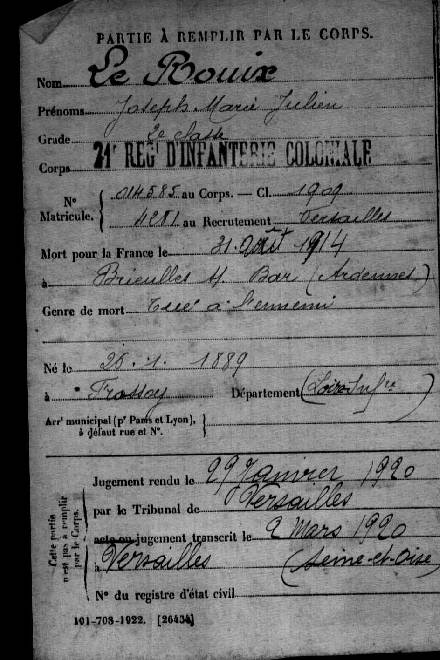 PARTIE À REMPLIR PAR LE CORPS.
Nom Le Rouix
Prénoms Joseph Marie Julien
Grade 2e classe
Corps 21e REGt D'INFANTERIE COLONIALE
No Matricule. 014585 au Corps. — Cl. 1909
4281 au Recrutement Versailles
Mort pour la France le 31 août 1914
à Brieulles s/ Bar (Ardennes)
Genre de mort Tué à l'ennemi
Né le 25. 1. 1889
à Département (Loire Infre)
Arrt municipal (pr Paris et Lyon),
à défaut rue et No.
Cette partie
n'est pas à remplir
par le Corps.
Jugement rendu le 29 Janvier 1920
par le Tribunal de Versailles
acte ou jugement transcrit le 2 mars 1920
à Versailles (Seine-et-Oise)
No du registre d'état civil
101-708-1922. [26434]